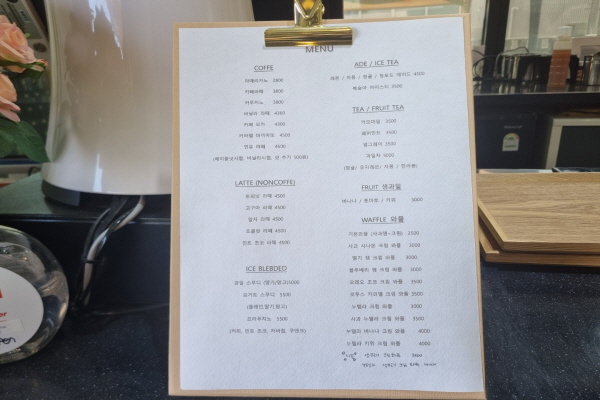 MENU
COFFE
아메리카노 2800
카페라떼 3800
카푸치노 3800
바닐라 라떼 4300
카페 모카 4300
카라멜 마끼아또 4500
민트 라떼 4500
LATTE (NONCOFFE)
토피넛 라떼 4500
고구마 라떼 4500
말차 라떼 4500
초콜릿 라떼 4500
민트 초코 라떼 4500
ICE BLEBDED
과일 스무디 (딸기/망고)5000
요거트 스무디 5500
(플레인,딸기,망고)
프라푸치노 5500
(커피, 민트 초코, 자바칩, 쿠앤크)
ADE / ICE TEA
레몬 / 자몽 / 청귤 / 청포도 에이드 4500
복숭아 아이스티 3500
TEA / FRUIT TEA
카모마일 3500
페퍼민트 3500
얼그레이 3500
과일차 5000
FRUIT 생과일
바나나 / 토마토 / 키위 5000
WAFFLE 와플
기본와플 (사과잼+크림) 2500
사과 시나몬 크림 와플 3000
딸기 잼 크림 와플 3000
블루베리 잼 크림 와플 3000
오레오 초코 크림 와플 3500
로투스 카라멜 크림 와플 3500
누텔라 크림 와플 3000
사과 누텔라 크림 와플 3500
누텔라 바나나 크림 와플 4000
누텔라 키위 크림 와플 4000